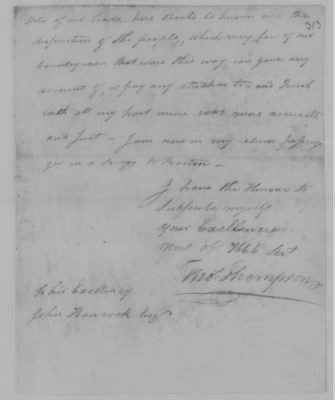 state of our Trade here should be known and the
disposition of the people, which very few of our
Countrymen that come this way can give any
account of, or pay any attention to and I wish
with all my heart mine was more accurate
and Just - I am now on my return passen
ger in a Brigg to Boston -
I have the Honour to
Subscribe myself
Your Excellencies
Most Ob Hbb Sert
Tho.s Thompson
To his Excellency
John Hancock Esqr
313